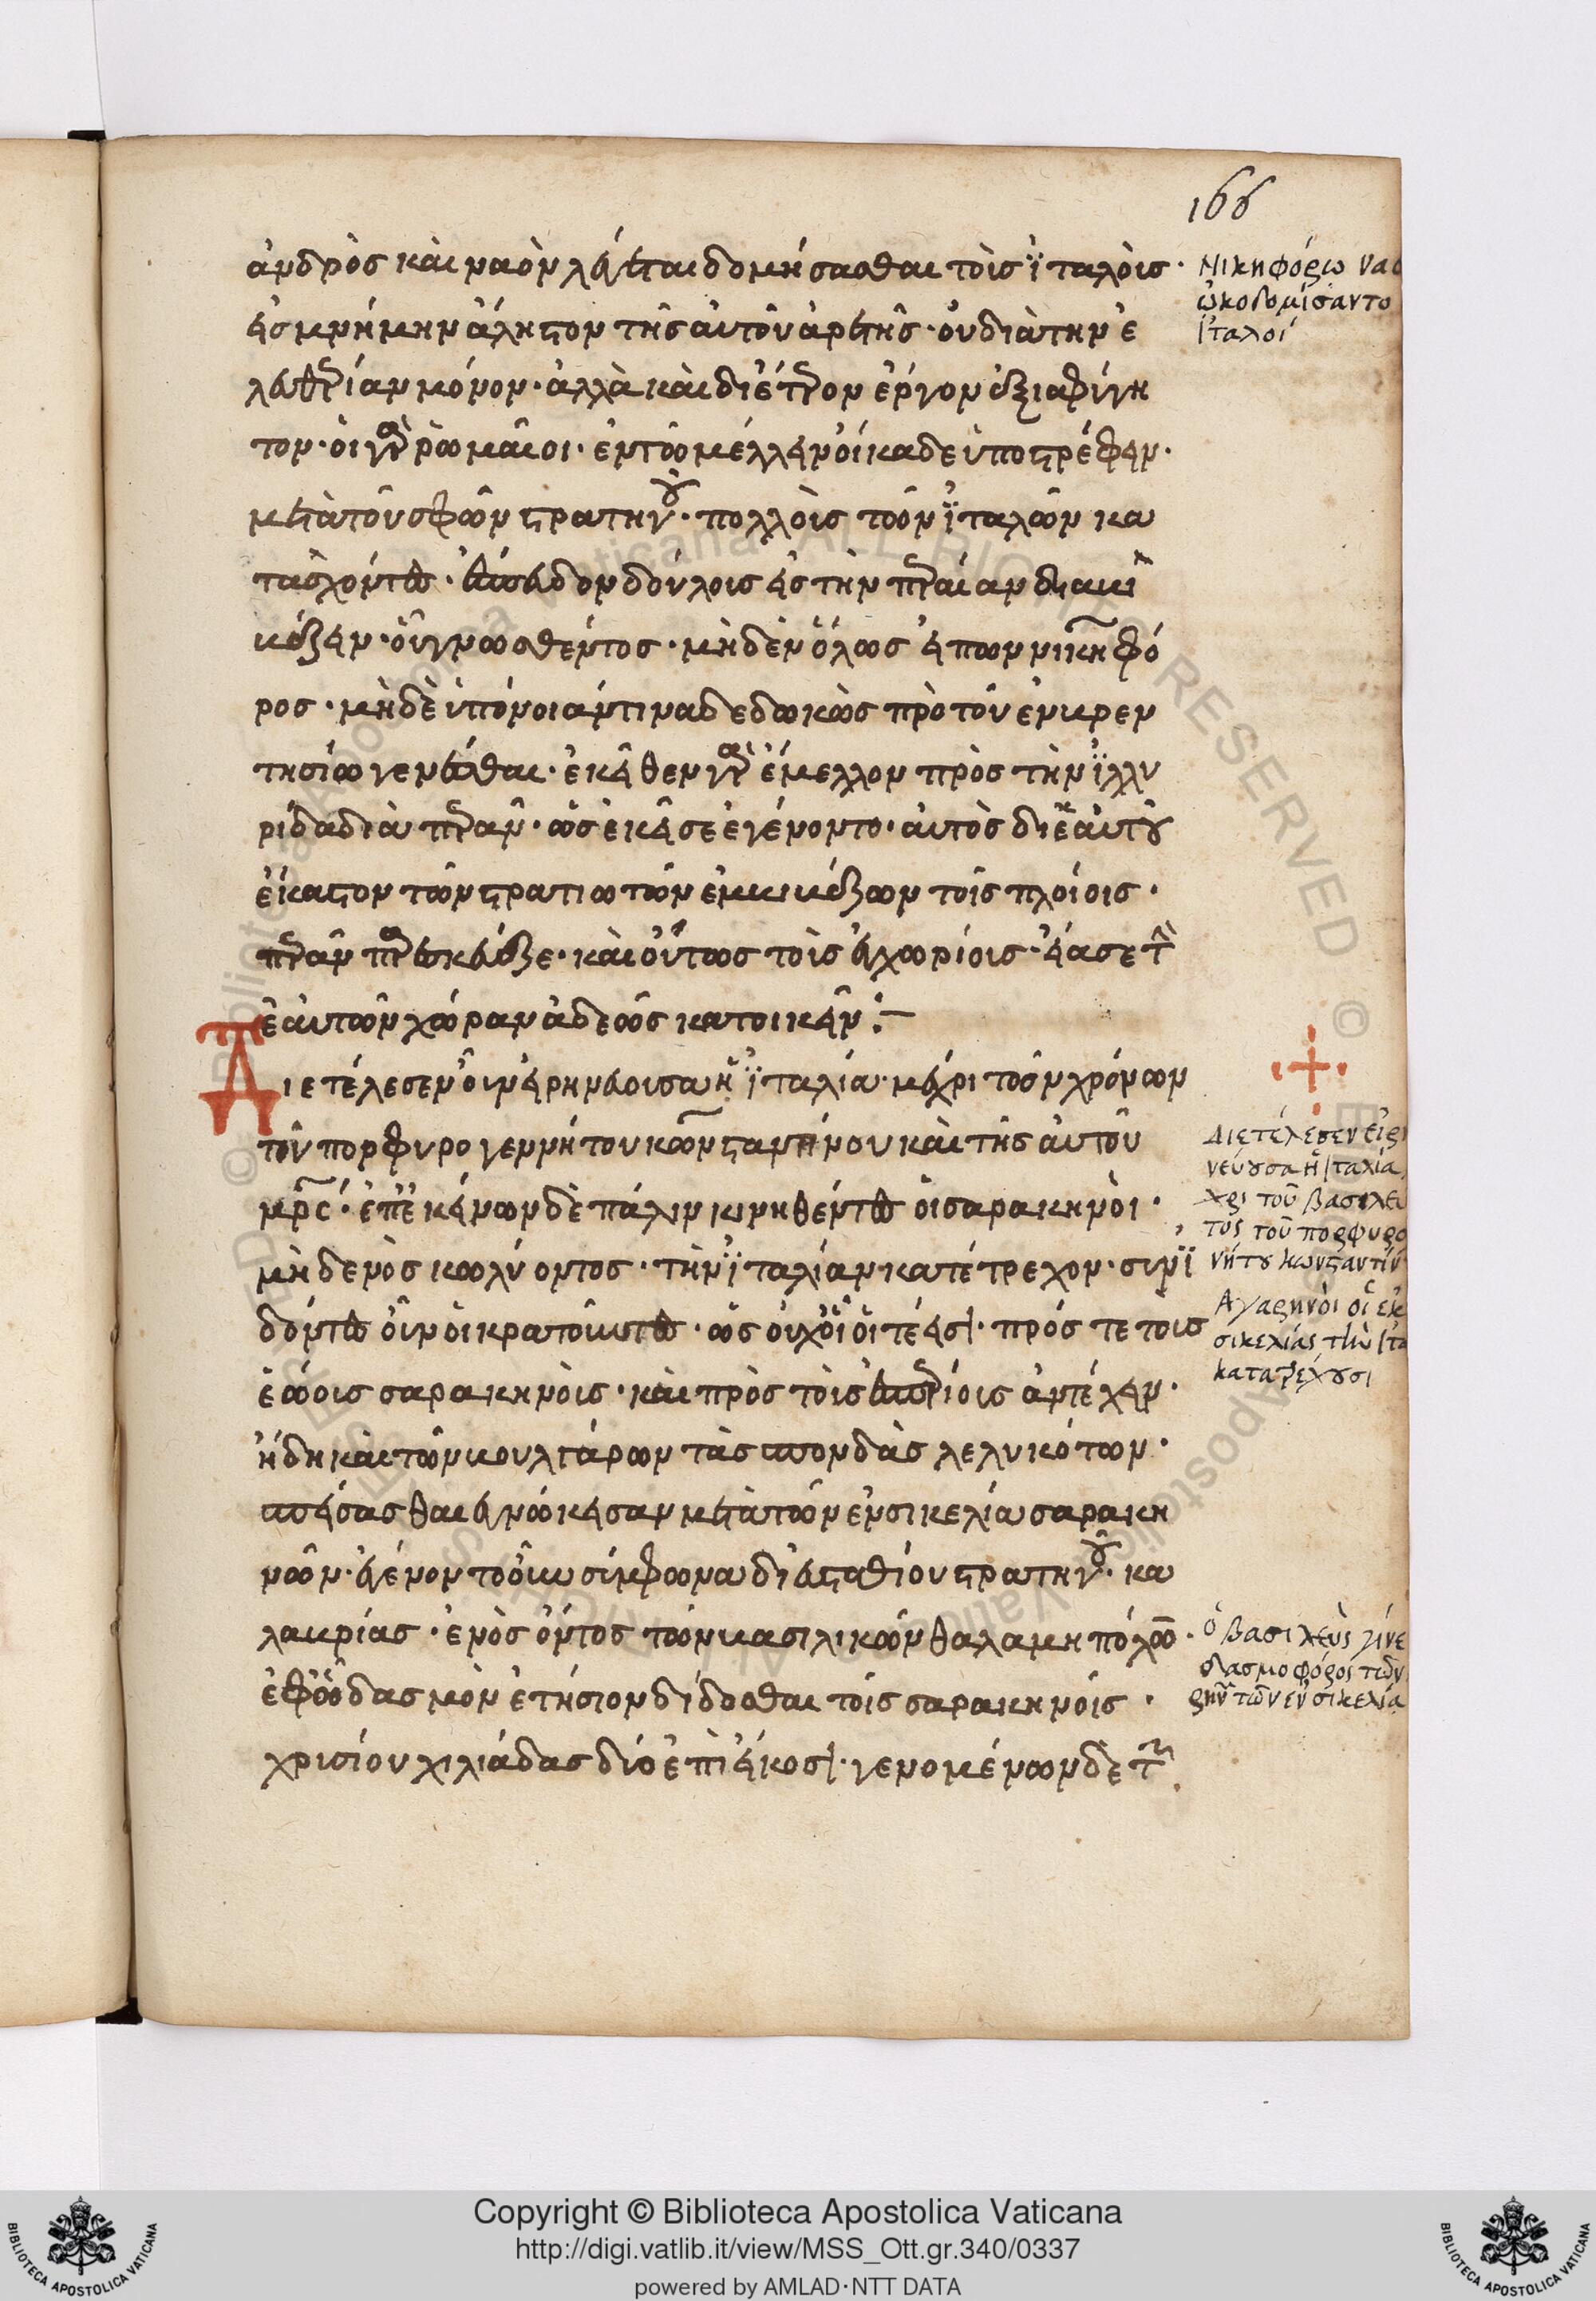 166
ἀνδρὸς καὶ ναὸν λέγεται δομήσασθαι τοῖς ἰταλοῖς·
εἰς μνήμην ἄληστον τῆς αὐτοῦ ἀρετῆς· οὐ διὰ τὴν ἐ
λευθερίαν μόνον· ἀλλὰ καὶ δι ἕτερον ἔργον ἀξιαφήγη
τον· οἱ γὰρ ῥωμαῖοι· ἐν τῷ μέλλειν οἴκαδε ὑποστρέφειν·
μετὰ τοῦ σφῶν στρατηγοῦ· πολλοὺς τῶν ἰταλῶν κα
τασχόντες· ἔσπευδον δούλους εἰς τὴν περαίαν διακι
βάζειν· οὗ γνωσθέντος· μηδὲν ὅλως εἰπὼν νικηφό
ρος· μηδὲ ὑπόνοιάν τινα δεδωκὼς πρὸ τοῦ ἐν βρεν
τησίω γενέσθαι· ἐκεῖθεν γὰρ ἔμελλον πρὸς τὴν ἰλλυ
ρίδα διαπερᾶν· ὡς ἐκεῖσε ἐγένοντο· αὐτὸς δι ἑαυτοῦ
ἕκαστον τῶν στρατιωτῶν ἐμβιβάζων τοῖς πλοίοις·
περᾶν παρεσκεύαζε· καὶ οὕτως τοὺς ἐγχωρίους εἴασε τὴν
ἑαυτῶν χώραν ἀδεῶς κατοικεῖν:–
Διετέλεσεν οὖν εἰρηνεύουσα ἡ ἰταλία· μέχρι τῶν χρόνων
τοῦ πορφυρογεννήτου κωνσταντίνου καὶ τῆς αὐτοῦ
μητρός· ἐπ ἐκείνων δὲ πάλιν κινηθέντες οἱ σαρακηνοί·
μηδενὸς κωλύοντος· τὴν ἰταλίαν κατέτρεχον· συνι
δόντες οὖν οἱ κρατοῦντες· ὡς οὐχ οἷοί τέ εἰσι· πρός τε τοὺς
ἑώους σαρακηνοὺς· καὶ πρὸς τοὺς ἑσπερίους ἀντέχειν·
ἤδη καὶ τῶν βουλγάρων τὰς σπονδὰς λελυκότων·
σπείσασθαι εὐδόκησαν μετὰ τῶν ἐν σικελία σαρακη
νῶν· ἐγένοντο οὖν σύμφωνα δι εὐσταθίου στρατηγοῦ· κα
λαβρίας· ἑνὸς ὄντος τῶν βασιλικῶν θαλαμηπόλων·
ἐφ ᾧ δασμὸν ἐτήσιον δίδοσθαι τοῖς σαρακηνοῖς·
χρυσίου χιλιάδας δύο ἐπὶ εἴκοσι· γενομένων δὲ τῶν
Νικηφόρω ναὸ
ὠκοδομίσαντο
Ἰταλοί
Διετέλεσεν εἰρ
νεύουσα ἡ Ἰταλία
χρι τοῦ βασιλεύ
τος τοῦ πορφυρο
νήτου Κωνσταντίν
Ἀγαρηνοὶ οἱ ἐκ
σικελίας τὴν Ἰτα
κατατρέχουσι
ὁ βασιλεὺς γίνε
δασμοφόρος τῶν
ρην τῶν ἐν σικελία
Copyright © Biblioteca Apostolica Vaticana
http://digi.vatlib.it/view/MSS_Ott.gr.340/0337
powered by AMLAD·NTT DATA